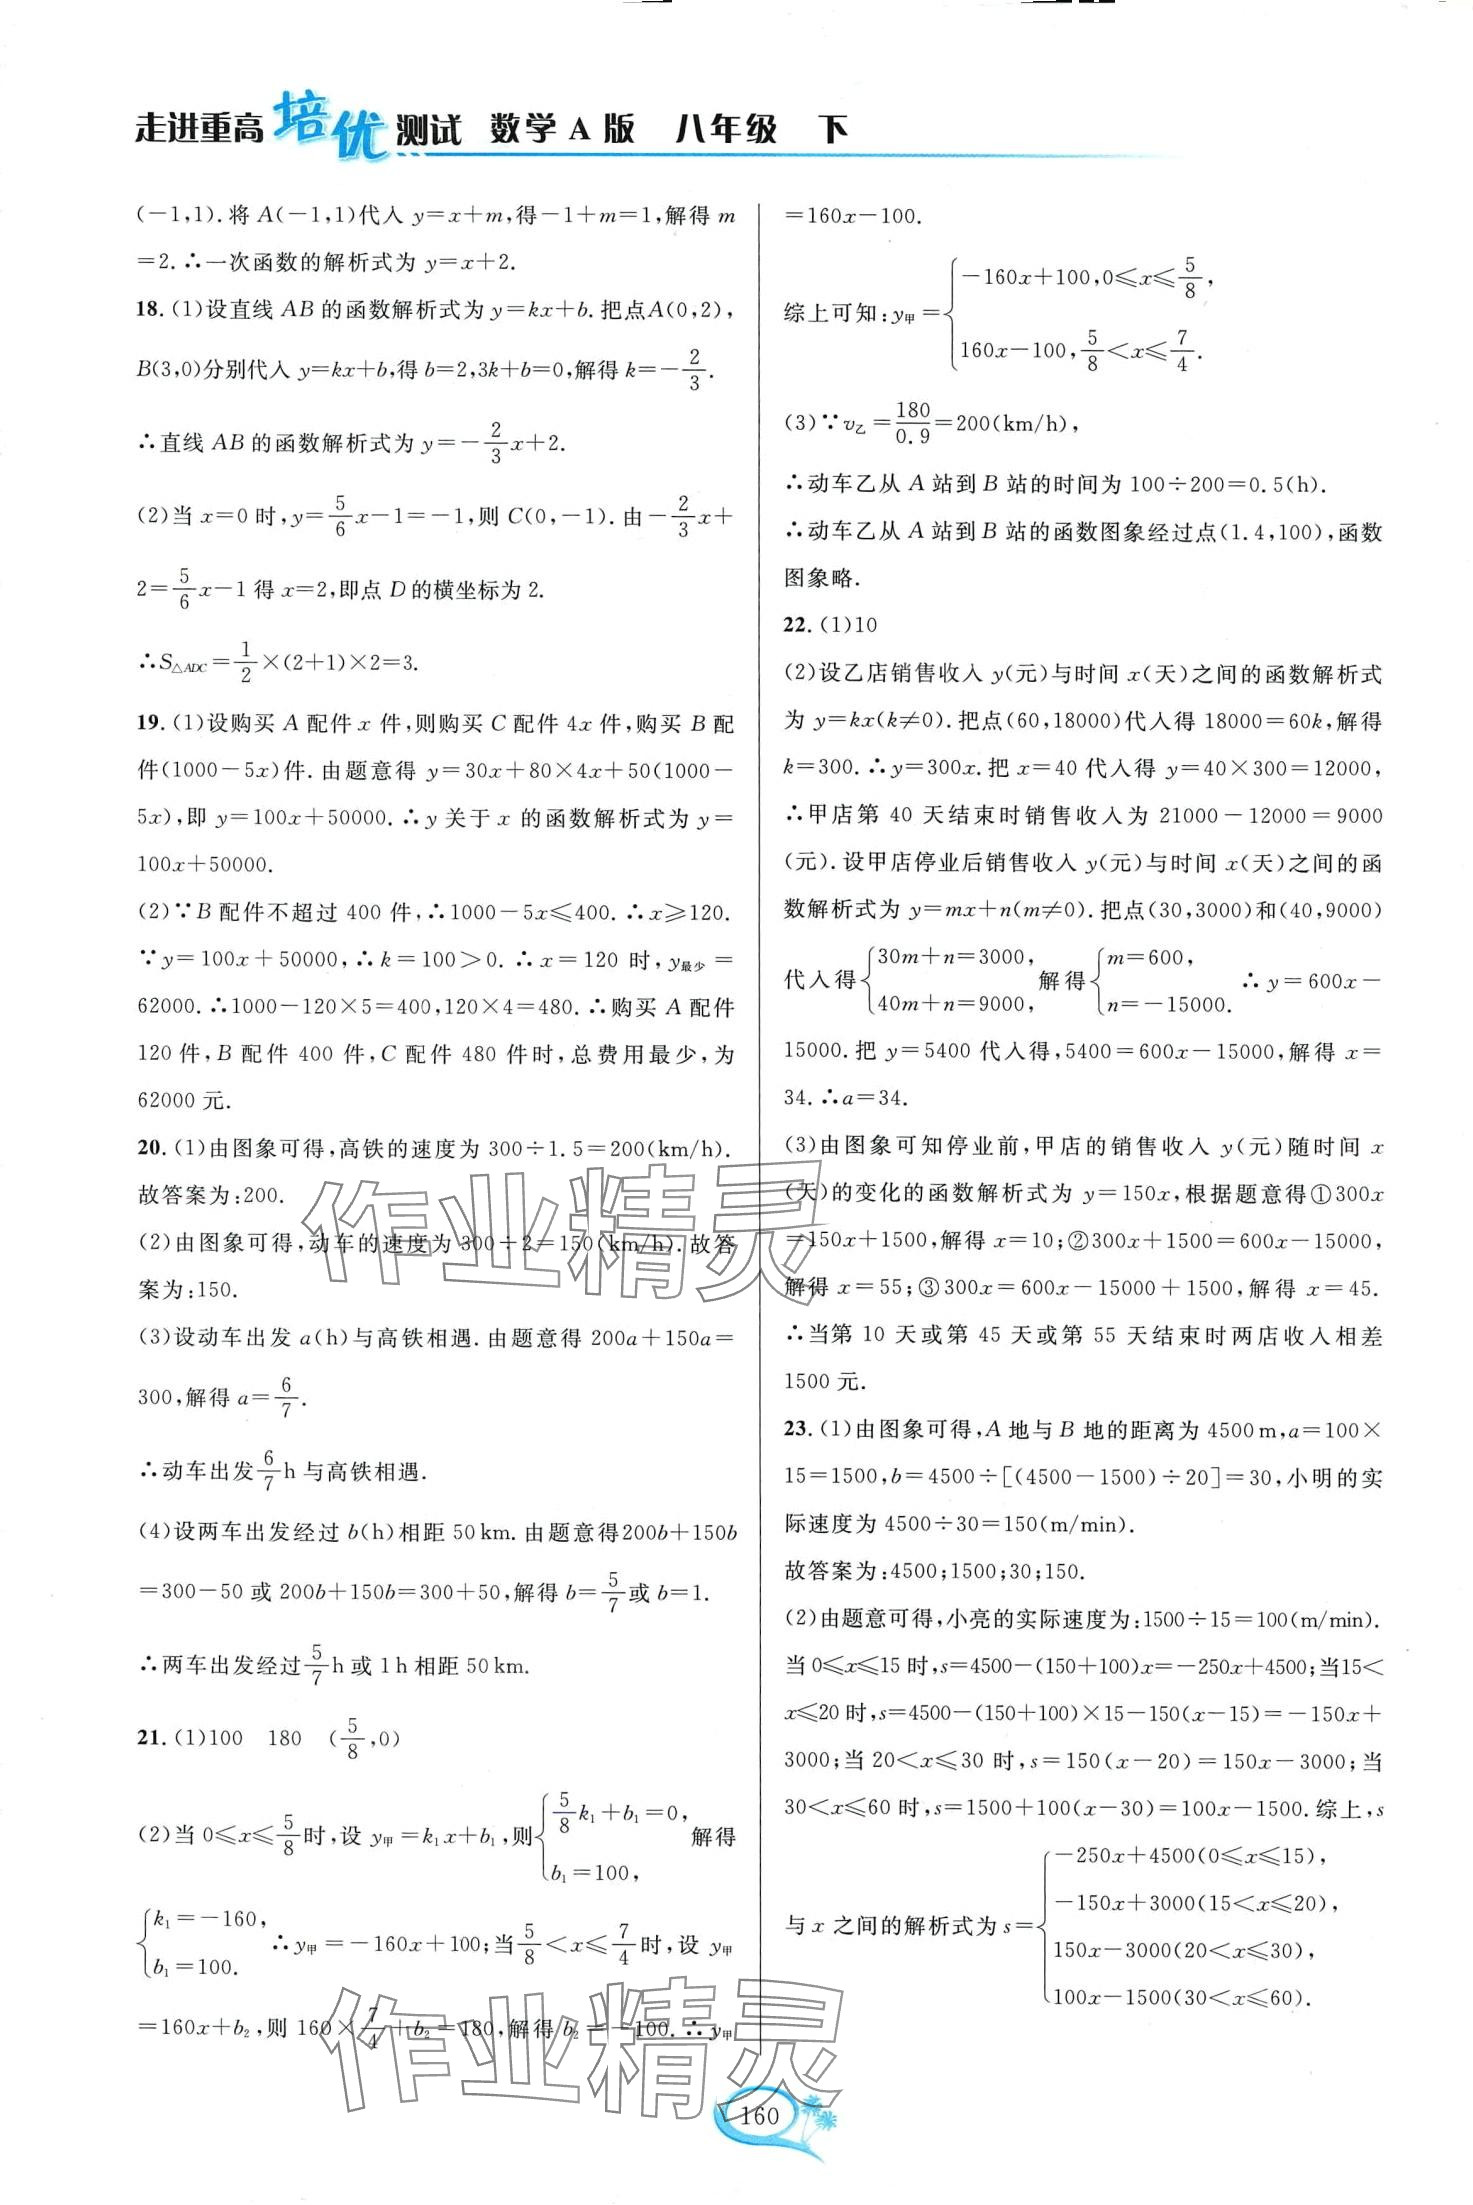 走进重高培优测试 数学A版 八年级 下
(-1,1).将 A(-1,1)代入 y=x+m,得-1+m=1,解得 m
=2.∴一次函数的解析式为 y=x+2.
18.(1)设直线 AB 的函数解析式为 y=kx+b.把点A(0,2),
B(3,0)分别代入 y=kx+b,得 b=2,3k+b=0,解得 k=-2/3.
∴直线 AB 的函数解析式为 y=-2/3x+2.
(2)当 x=0 时,y=5/6x-1=-1,则 C(0,-1).由-2/3x+
2=5/6x-1 得 x=2,即点 D 的横坐标为 2.
∴S△ADC=1/2×(2+1)×2=3.
19.(1)设购买 A 配件 x 件,则购买 C 配件 4x 件,购买 B 配
件(1000-5x)件.由题意得 y=30x+80×4x+50(1000-
5x),即 y=100x+50000.∴y 关于 x 的函数解析式为 y=
100x+50000.
(2)∵B 配件不超过 400 件,∴1000-5x≤400.∴x≥120.
∵y=100x+50000,∴k=100>0.∴x=120 时,y最少=
62000.∴1000-120×5=400,120×4=480.∴购买 A 配件
120 件,B 配件 400 件,C 配件 480 件时,总费用最少,为
62000 元.
20.(1)由图象可得,高铁的速度为 300÷1.5=200(km/h).
故答案为:200.
(2)由图象可得,动车的速度为 300÷2=150(km/h).故答
案为:150.
(3)设动车出发 a(h)与高铁相遇.由题意得 200a+150a=
300,解得 a=6/7.
∴动车出发6/7h 与高铁相遇.
(4)设两车出发经过 b(h)相距 50 km.由题意得200b+150b
=300-50 或 200b+150b=300+50,解得 b=5/7或 b=1.
∴两车出发经过5/7h 或 1h 相距 50 km.
21.(1)100 180 (5/8,0)
(2)当 0≤x≤5/8时,设 y甲=k₁x+b₁,则{5/8k₁+b₁=0, b₁=100,解得
{k₁=-160, b₁=100.∴y甲=-160x+100;当5/8<x≤7/4时,设 y甲
=160x+b₂,则 160×7/4+b₂=180,解得 b₂=-100.∴y甲
=160x-100.
综上可知:y甲={-160x+100,0≤x≤5/8, 160x-100,5/8<x≤7/4.
(3)∵v乙=180/0.9=200(km/h),
∴动车乙从 A 站到 B 站的时间为 100÷200=0.5(h).
∴动车乙从 A 站到 B 站的函数图象经过点(1.4,100),函数
图象略.
22.(1)10
(2)设乙店销售收入 y(元)与时间 x(天)之间的函数解析式
为 y=kx(k≠0).把点(60,18000)代入得 18000=60k,解得
k=300.∴y=300x.把 x=40 代入得 y=40×300=12000,
∴甲店第 40 天结束时销售收入为 21000-12000=9000
(元).设甲店停业后销售收入 y(元)与时间 x(天)之间的函
数解析式为 y=mx+n(m≠0).把点(30,3000)和(40,9000)
代入得{30m+n=3000, 40m+n=9000,解得{m=600, n=-15000.∴y=600x-
15000.把 y=5400 代入得,5400=600x-15000,解得 x=
34.∴a=34.
(3)由图象可知停业前,甲店的销售收入 y(元)随时间 x
(天)的变化的函数解析式为 y=150x,根据题意得①300x
=150x+1500,解得 x=10;②300x+1500=600x-15000,
解得 x=55;③300x=600x-15000+1500,解得 x=45.
∴当第 10 天或第 45 天或第 55 天结束时两店收入相差
1500 元.
23.(1)由图象可得,A 地与 B 地的距离为 4500 m,a=100×
15=1500,b=4500÷[(4500-1500)÷20]=30,小明的实
际速度为 4500÷30=150(m/min).
故答案为:4500;1500;30;150.
(2)由题意可得,小亮的实际速度为:1500÷15=100(m/min).
当 0≤x≤15 时,s=4500-(150+100)x=-250x+4500;当15<
x≤20 时,s=4500-(150+100)×15-150(x-15)=-150x+
3000;当 20<x≤30 时,s=150(x-20)=150x-3000;当
30<x≤60 时,s=1500+100(x-30)=100x-1500.综上,s
与 x 之间的解析式为 s={-250x+4500(0≤x≤15), -150x+3000(15<x≤20), 150x-3000(20<x≤30), 100x-1500(30<x≤60).
160
作业精灵
作业精灵